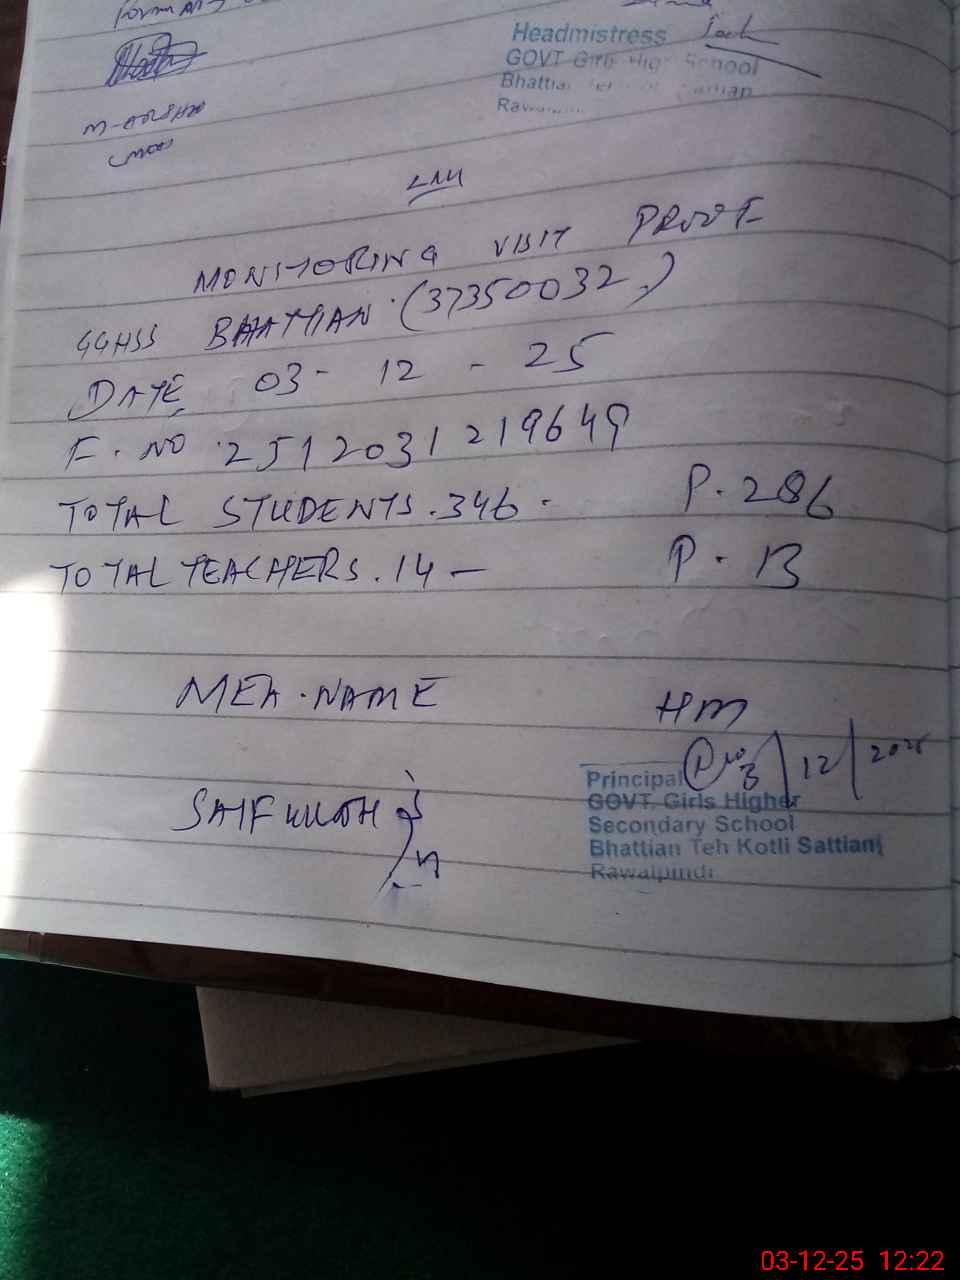 Headmistress
GOVT Girls High School
Bhattian
M-ARSHAD
MONITORING VISIT PROOF
GGHSS BHATTIAN (37350032)
DATE 03-12-25
F.NO 2512031219649
TOTAL STUDENTS.346. P.286
TOTAL TEACHERS.14— P.13
MEA.NAME HM
3/12/2025
Principal
GOVT. Girls Higher
SAIF ULLAH
Secondary School
Bhattian Teh Kotli Sattian
Rawalpindi
03-12-25 12:22